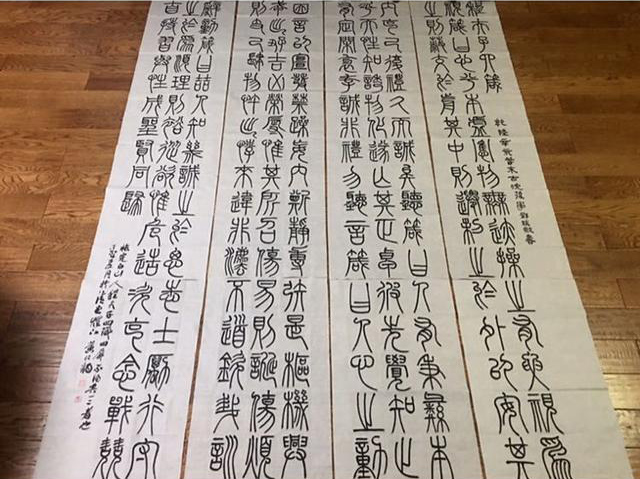 程夫子四箴
視箴曰心兮本虛應物無迹操之有要視為
之則蔽交於前其中則遷制之於外以安其
乾隆辛丑
敬書
內克己復禮久而誠矣聽箴曰人有秉彝本
乎天性知誘物化遂亡其正卓彼先覺知止
有定閑邪存誠非禮勿聽言箴曰人心之動
因言以宣發禁躁妄內斯靜專矧是樞機興
戎出好吉凶榮辱惟其所召傷易則誕傷煩
則支己肆物忤出悖來違非法不道欽哉訓
辭動箴曰哲人知幾誠之於思志士勵行守
之於為順理則裕從欲惟危造次克念戰兢
自持習與性成聖賢同歸
臨完白山人程夫子四箴四屏
五月於